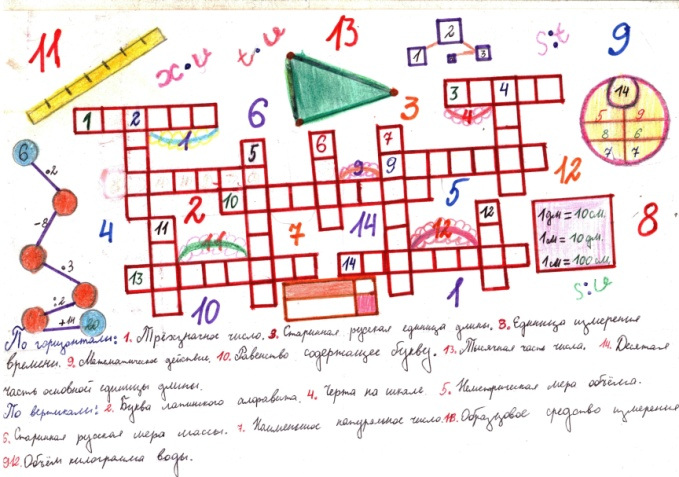 11
x:v
t:v
13
1 2 3
s:t
9
3 4
14
5 9
8 6
7 7
1 2
6
3
4
1
5
6
7
6
•2
-8
•3
:2
+14
20
9
9
12
2
10
5
4
11
7
14
12
12
8
1дм = 10см.
1м = 10дм.
1м = 100см.
11
13
14
10
1
s:v
По горизонтали: 1. Трёхзначное число. 8. Старинная русская единица длины. 3. Единица измерения
времени. 9. Математическое действие. 10. Равенство содержащее букву. 13. Тысячная часть числа. 14. Десятая
часть основной единицы длины.
По вертикали: 2. Буква латинского алфавита. 4. Черта на шкале. 5. Неметрическая мера объёма.
6. Старинная русская мера массы. 7. Наименьшее натуральное число. 11. Образцовое средство измерения
12. Объём килограмма воды.